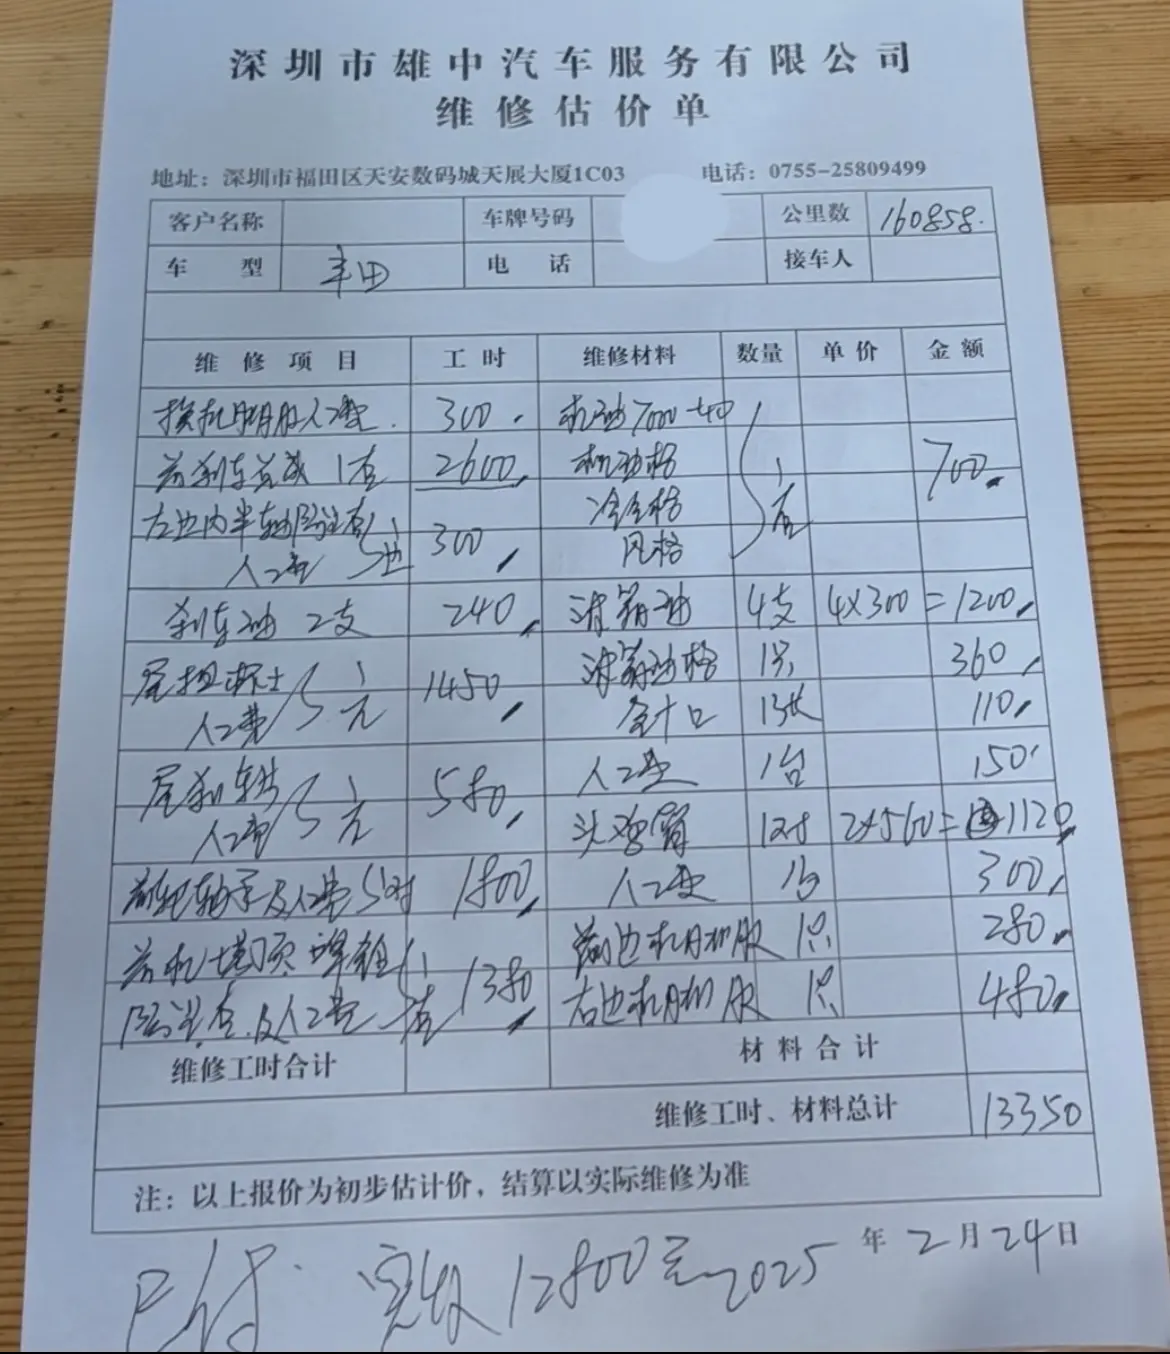 深圳市雄中汽车服务有限公司
维修估价单
地址：深圳市福田区天安数码城天展大厦1C03 电话：0755-25809499
客户名称 车牌号码 公里数 160858.
车型 丰田 电话 接车人
维修项目 工时 维修材料 数量 单价 金额
换机脚胶人工费. 300. 机油7000-40
前刹车总成 1套 2600. 机油格 1套 700.
左边内半轴防尘套 冷气格
人工费 1边 300 风格
刹车油 2支 240. 波箱油 4支 4×300 =1200.
人工费 1元 1450. 波箱油格 1只 360
110.
人工费 1元 580. 人工费 1台 150
1对 2×560= 1120.
前轮轴承及人工费 1对 1800. 人工费 1台 300.
1380. 边机脚胶 1只 280.
防尘套及人工费 1套 右边机脚胶 1只 480.
维修工时合计 材料合计
维修工时、材料总计 13350
注：以上报价为初步估计价，结算以实际维修为准
实收12800元 2025年2月24日